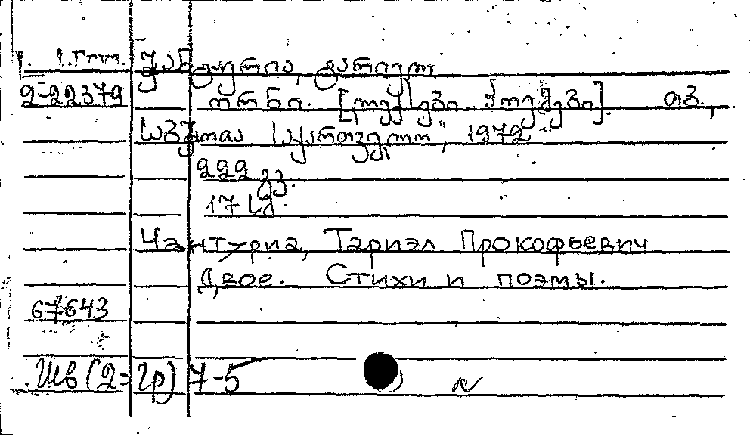 ჭანტურია, ტარიელ
2-22379 ორნი. [ლექსები. პოემები]. თბ.,
"საბჭოთა საქართველო", 1972
222 გვ.
17 სმ.
Чантуриа, Тариэл Прокофьевич
Двое. Стихи и поэмы.
67643
Шв (2=Гр) 7-5